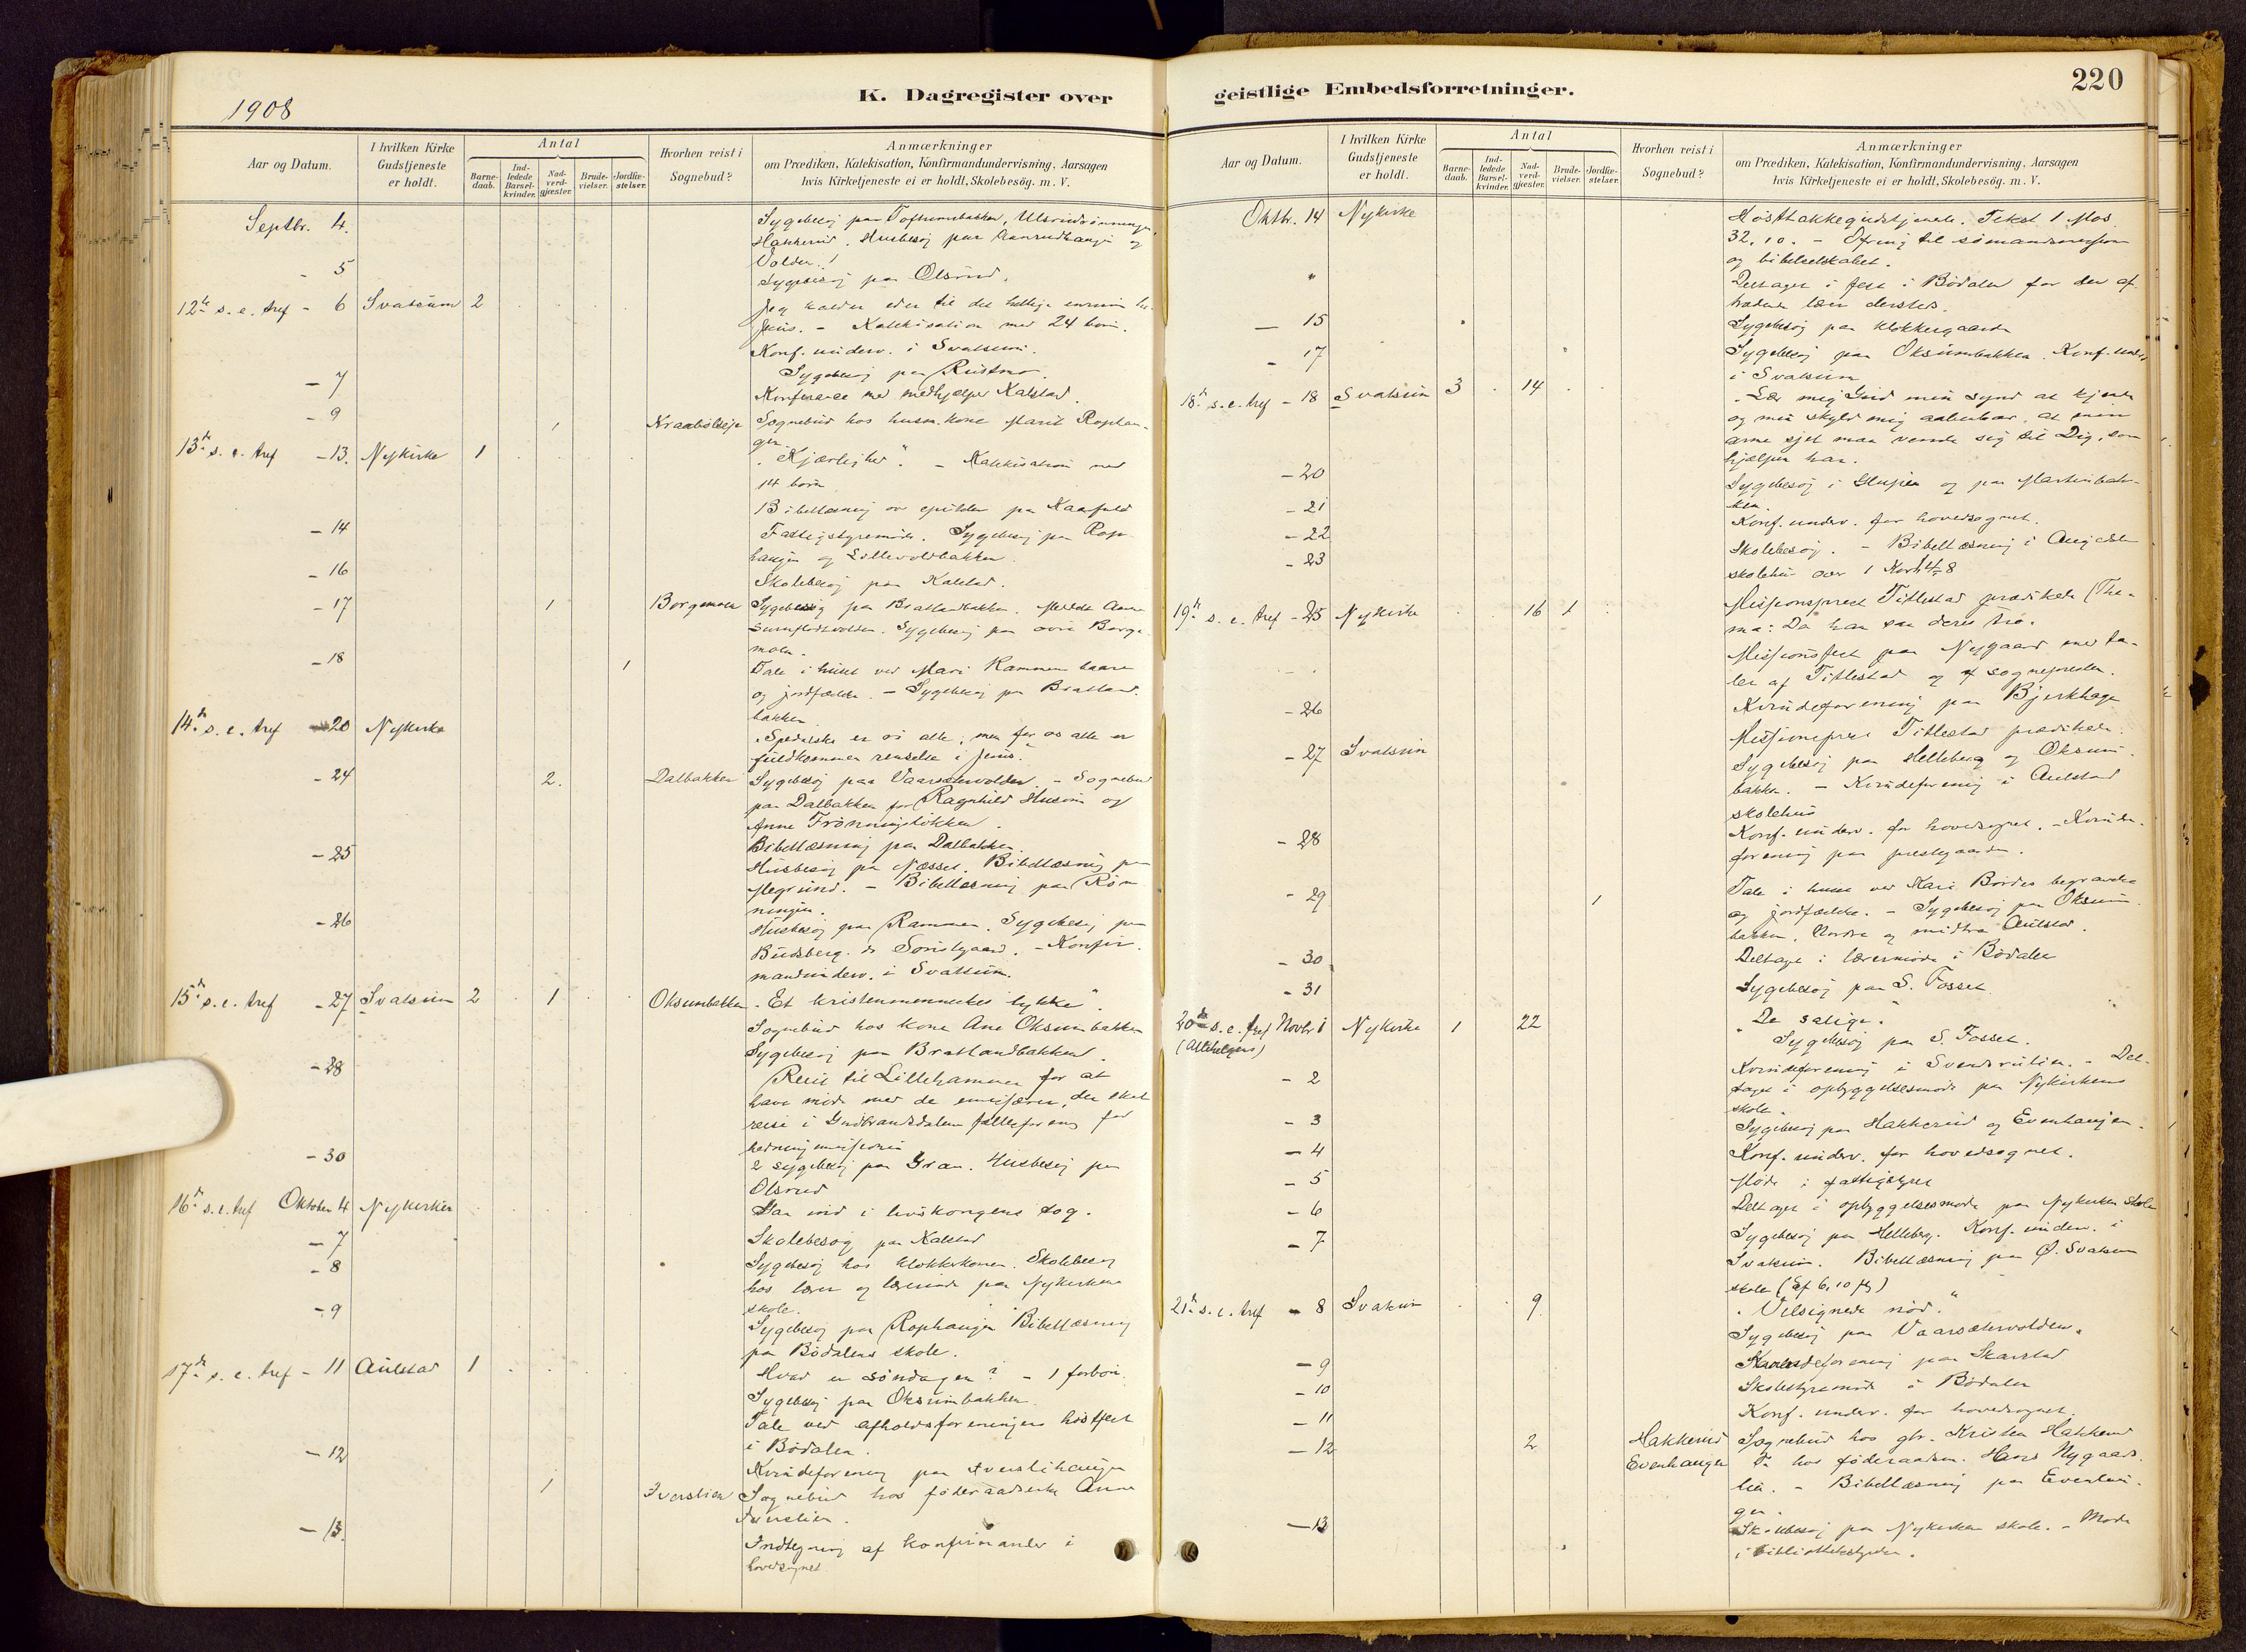 1908
K. Dagregister over
Aar og Datum.
I hvilken Kirke Gudstjeneste er holdt.
Antal
Barne-daab.
Ind-ledede Barsel-kvinder.
Nad-verd-gjester.
Brude-vielser.
Jordfæ-stelser.
Hvorhen reist i Sognebud?
Anmærkninger
om Prædiken, Katekisation, Konfirmandundervisning, Aarsagen
hvis Kirketjeneste ei er holdt, Skolebesög. m. V.
Septbr. 4. Sygebesøj paa Toftumsbakken, Ulsrudrønningen,
Hakkerud. Husbesøj paa Aanrudhaugen og
Volden.
- 5 Sygebesøj paa Olsrud.
12te s. e. tref - 6 Svatsum 2 Jeg kalder eder til det hellige
Jesus. - Katekisation med 24 born.
Konf. underv. i Svatsum.
Sygebesøj paa Rustmo.
- 7 Konferanse med medhjælper Kalstad.
- 9 Kraabølseje 1 Sognebud hos husm. kone Marit Rophau-
gen
13de s. e. tref - 13. Nykirke 1 "Kjærlighed". - Katekisation med
14 born
Bibellæsning ov epistlen paa
- 14 Fattigstyremøde. Sygebesøj paa Rop-
haugen og Lillevoldbakken.
- 16 Skolebesøj paa Kalstad.
- 17 1 Borgemoen Sygebesøj paa Bratlandbakken.
Sygebesøj paa øvre Borge-
moen.
- 18 1 Tale i huset ved Mari Rammen baare
og jordfæstelse. - Sygebesøj paa Bratland-
bakken.
14de s. e. tref - 20 Nykirke "Spedalske er vi alle, men for os alle er
fuldkommen renselse i Jesus."
- 24 2. Dalbakken Sygebesøj paa Vaarsætervolden - Sognebud
paa Dalbakken for Ragnhild Husom og
Anne Frønningsløkken.
Bibellæsning paa Dalbakken
- 25 Husbesøj paa Næsset. Bibellæsning paa
Megrund. - Bibellæsning paa Røn
ningen.
- 26 Husbesøj paa Rammen. Sygebesøj paa
Budsberg. do Sørstegaard. - Konfir-
mandunderv. i Svatsum.
15de s. e. tref - 27 Svatsum 2 1 Oksumbakken "Et kristenmenneskes lykke".
Sognebud hos kone Ane Oksumbakken
Sygebesøj paa Bratlandbakken.
- 28 Reise til Lillehammer for at
have møde med de emissærer, der skal
reise i Gudbrandsdalens fællesforening for
hedningemissionen
- 30 2 sygebesøj paa Gran. Husbesøj paa
Olsrud
16de s. e. tref Oktober 4 Nykirken Dan ind i livskongens tog.
- 7 Skolebesøg paa Kalstad
- 8 Sygebesøj hos klokkerkonen. Skolebesøj
hos lærer og lærerinde paa Nykirkens
skole.
- 9 Sygebesøj paa Rophaugen Bibellæsning
paa Bødalens skole.
17de s. e. tref - 11 Aulstad 1 Hvad er søndagen? - 1 forbøn.
Sygebesøj paa Oksumbakken.
Tale ved afholdsforeningens høstfest
i Bødalen.
- 12 Kvindeforening paa Iverslihaugen
1 Iverslien Sognebud hos føderaadsenke Anne
Iverslien.
- 13. Indtegning af konfirmander i
hovedsognet
geistlige Embedsforretninger.
220
Aar og Datum.
I hvilken Kirke Gudstjeneste er holdt.
Antal
Barne-daab.
Ind-ledede Barsel-kvinder.
Nad-verd-gjester.
Brude-vielser.
Jordfæ-stelser.
Hvorhen reist i Sognebud?
Anmærkninger
om Prædiken, Katekisation, Konfirmandundervisning, Aarsagen
hvis Kirketjeneste ei er holdt, Skolebesög. m. V.
Oktbr. 14 Nykirke Høsttakkegudstjeneste. Tekst 1 Mos
32, 10. - Ofring til sømandsmission
og bibelselskabet.
" Deltaget i fest i Bødalen for den af-
trædende lærer dersteds.
- 15 Sygebesøj paa klokkergaarden
- 17 Sygebesøj paa Oksumbakken. Konf. underv.
i Svatsum
18de s. e. tref - 18 Svatsum 3 14 "Lær mig Gud min synd at kjende
og min skyld mig aabenbar, at min
arme sjel maa vende sig til Dig, som
hjælpen har.
- 20 Sygebesøj i Husjen og paa Martinbak-
ken.
- 21 Konf. underv. for hovedsognet.
- 22 Skolebesøj. - Bibellæsning i Augestad
- 23 skolehus over 1 Kor 4-8
19de s. e. tref - 25 Nykirke 16 1 Missionsprest Titlestad prædikede (The-
ma: Da han saa deres tro.
Missionsfest paa Nygaard med ta-
ler af Titlestad og af sognepresten.
- 26 Kvindeforening paa Bjerkhage
- 27 Svatsum Missionsprest Titlestad prædikede.
Sygebesøj paa Helleberg og Oksum-
bakken. - Kvindeforening i Aulstad
skolehus
- 28 Konf. underv. for hovedsognet. - Kvinde-
forening paa prestegaarden.
- 29 1 Tale i huset ved Kari Bordes begravelse
og jordfæstelse. - Sygebesøj paa Oksum-
bakken, Nordre og midtre Aulstad.
- 30 Deltaget i lærermøde i Bødalen
- 31 Sygebesøj paa S. Fosset
20de s. e. tref Novbr 1 Nykirke 1 22 "De salige."
(Allehelgens) Sygebesøj paa S. Fosset.
- 2 Kvindeforening i Svendsrulien. - Del-
taget i opbyggelsesmøde paa Nykirkens
skole.
- 3 Sygebesøj paa Hakkerud og Evenhaugen.
- 4 Konf. underv. for hovedsognet.
- 5 Møde i fattigstyret
- 6 Deltaget i opbyggelsesmøde paa Nykirken skole
- 7 Sygebesøj paa Helleberg. Konf. underv. i
Svatsum. Bibellæsning paa Ø. Svatsum
skole (Ef 6, 10 fg)
21de s. e. tref - 8 Svatsum 9 "Velsignede nød."
Sygebesøj paa Vaarsætervolden.
- 9 Kvindeforening paa Skarstad
- 10 Skolestyremøde i Bødalen
- 11 Konf. underv. for hovedsognet.
- 12 2 Hakkerud Sognebud hos gbr. Kristen Hakkerud
Evenhaugen Do hos føderaadsm. Hans Nygaards-
lien. - Bibellæsning paa Evenhau-
gen.
- 13 Skolebesøj paa Nykirken skole. - Møde
i bibliotekstyret.